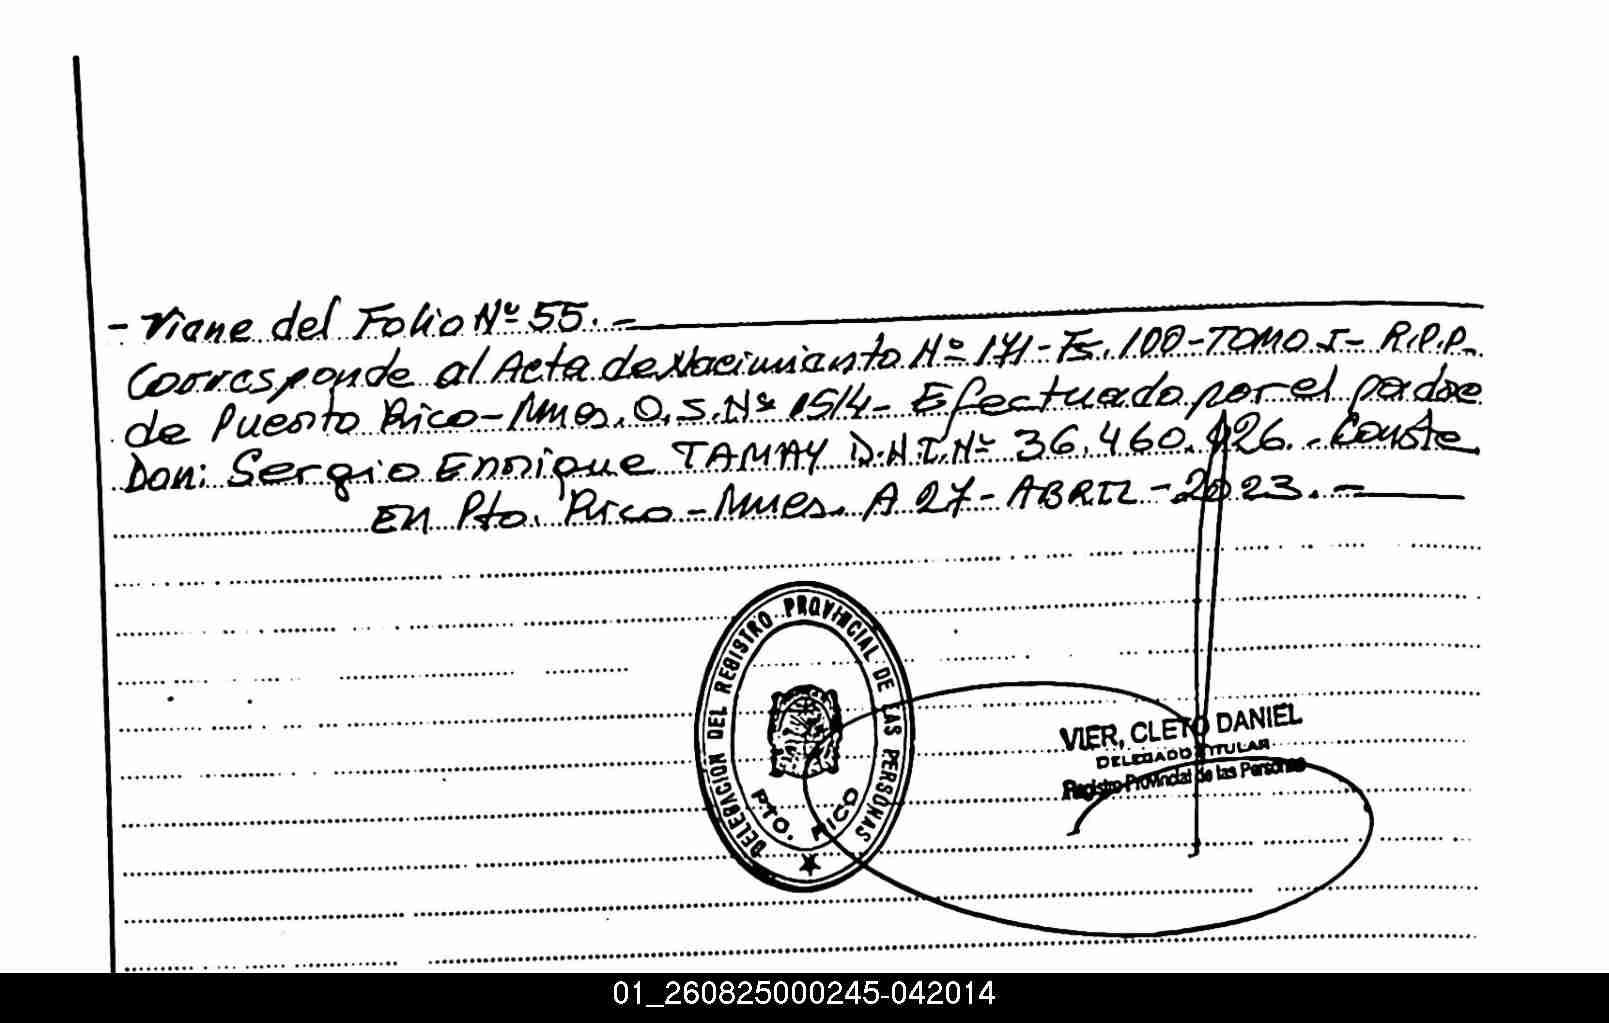 - Viene del Folio Nº 55. -
Corresponde al Acta de Nacimiento Nº 171 - Fs. 100 - TOMO I - R.P.P.
de Puerto Rico - Mnes. O.S. Nº 1514 - Efectuado por el padre
Don: Sergio Enrique TAMAY D.N.I. Nº 36.460.926. - Conste
EN Pto. Rico - Mnes. A 27 - ABRIL - 2023. -
DELEGACION DEL REGISTRO PROVINCIAL DE LAS PERSONAS
PTO. RICO
VIER, CLETO DANIEL
DELEGADO TITULAR
Registro Provincial de las Personas
01_260825000245-042014